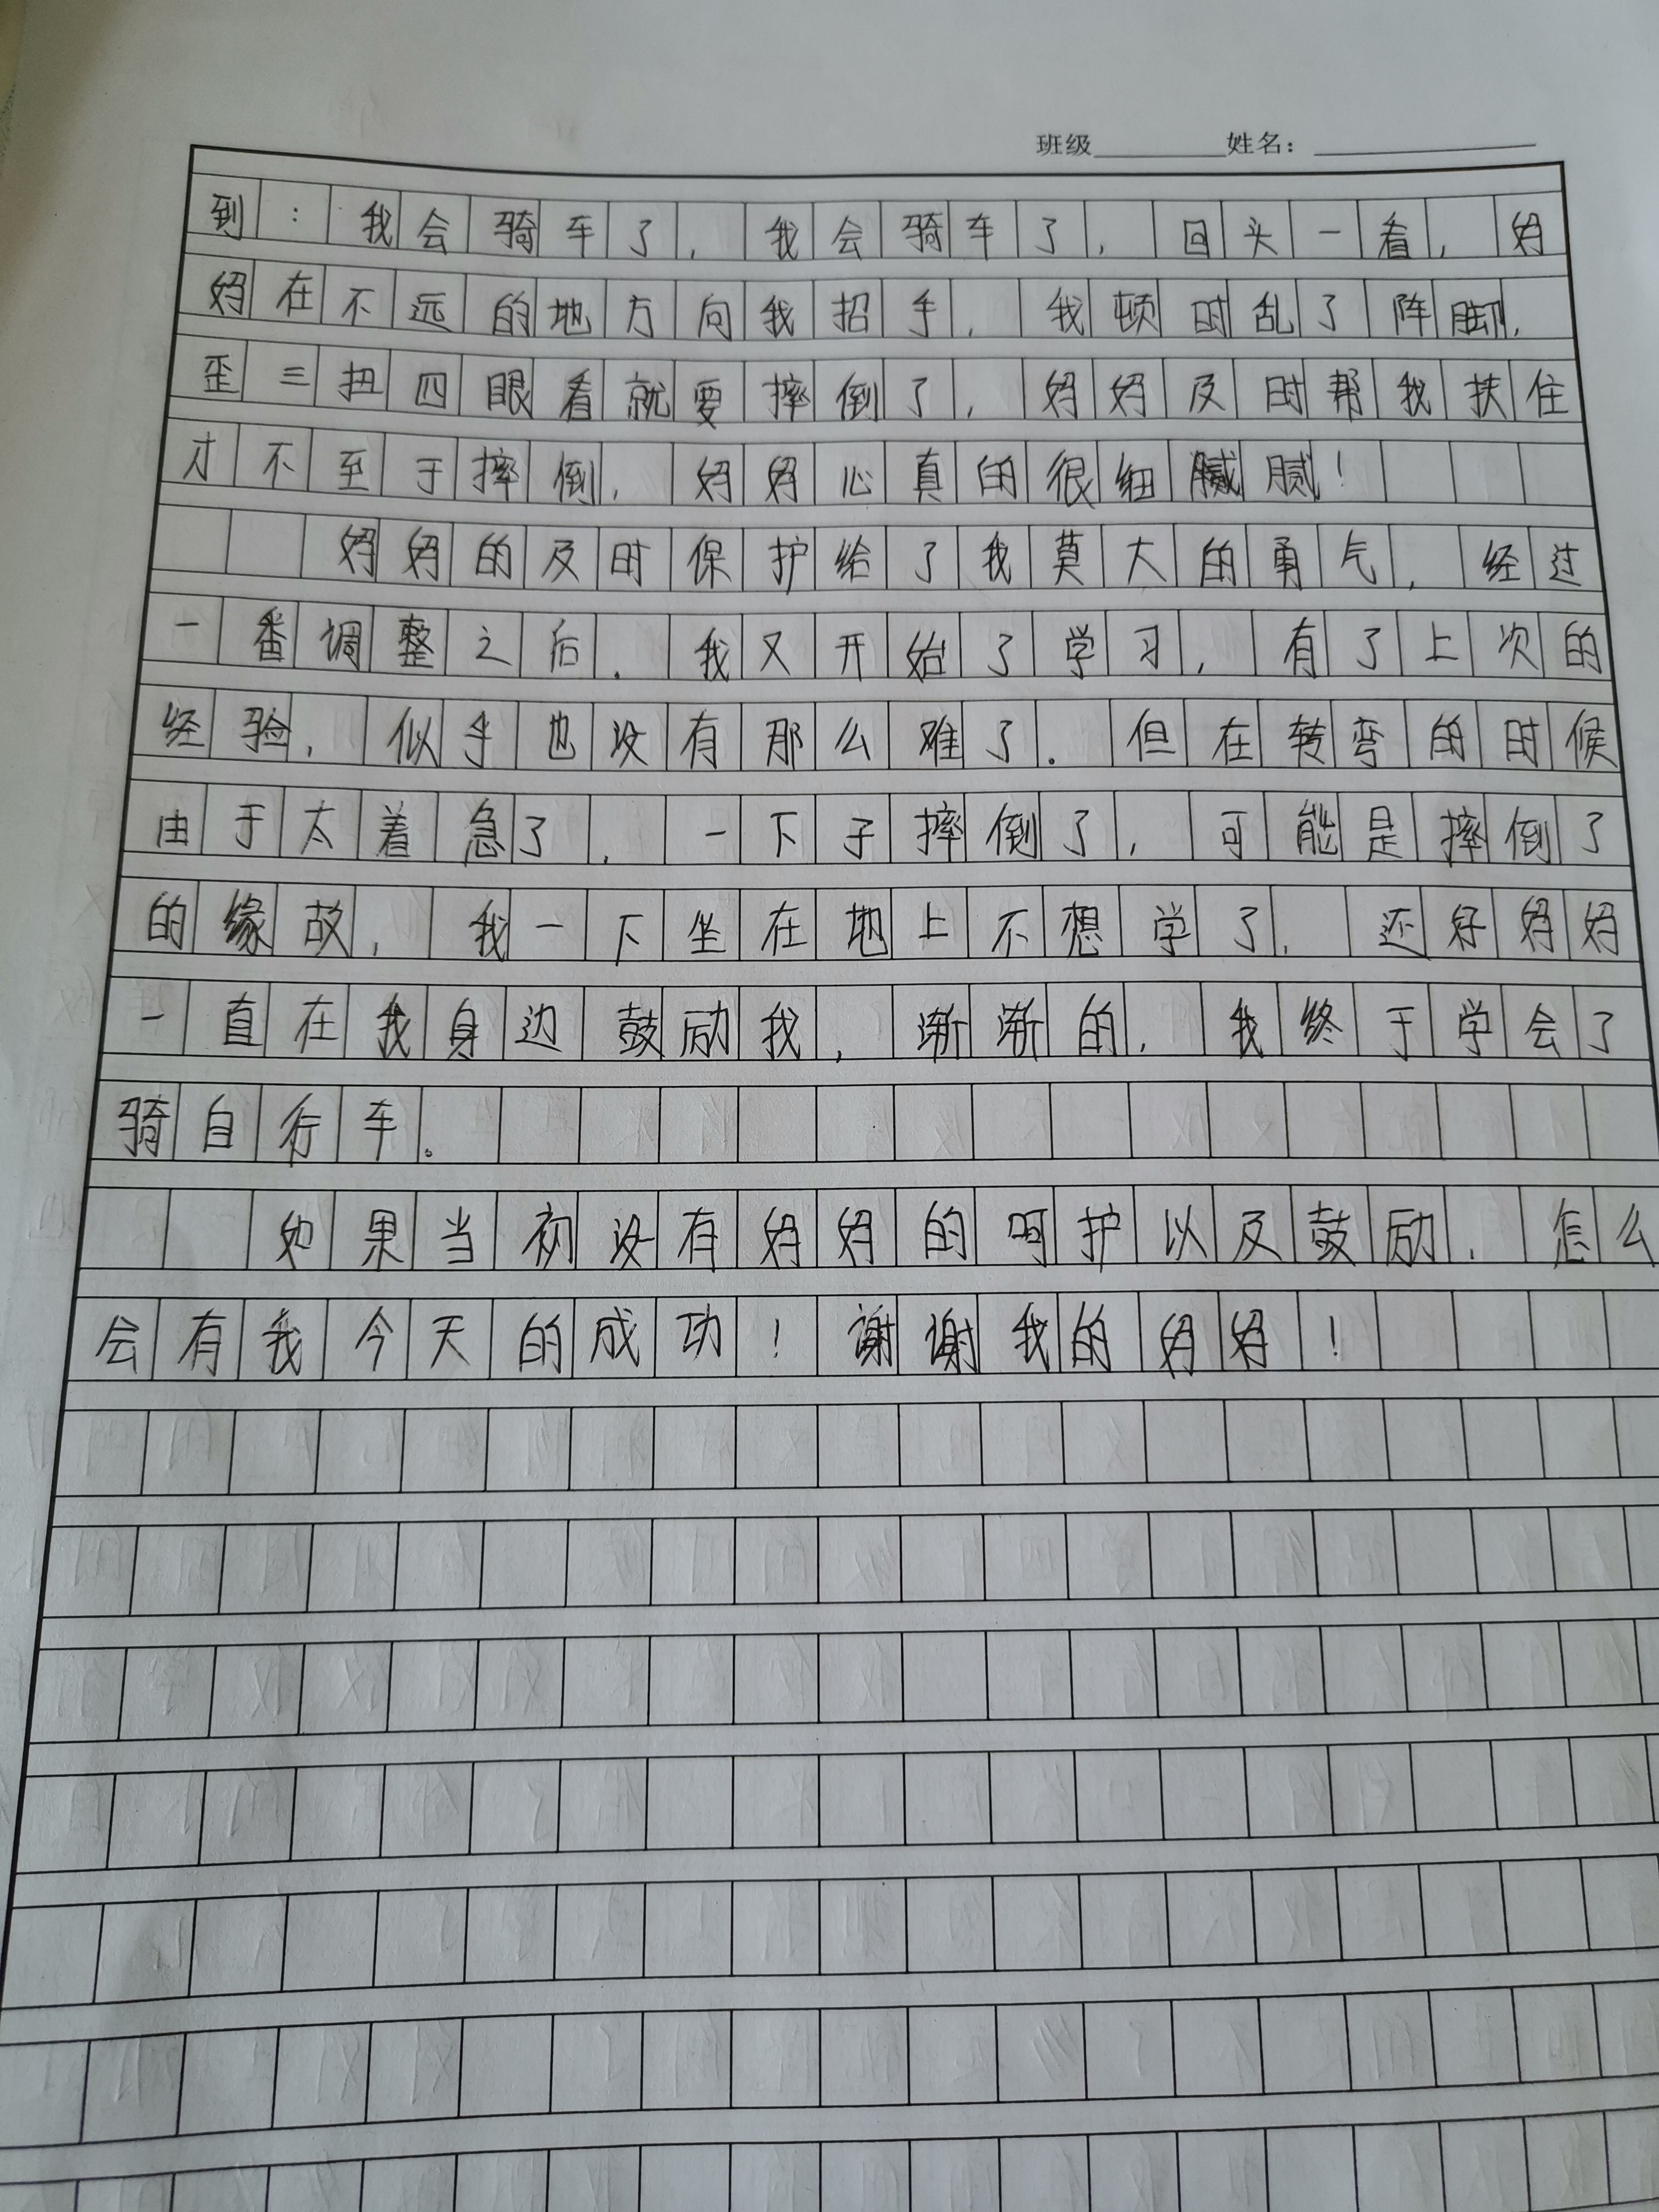 班级 姓名：
到：我会骑车了，我会骑车了，回头一看，妈
妈在不远的地方向我招手，我顿时乱了阵脚，
歪三扭四眼看就要摔倒了，妈妈及时帮我扶住
才不至于摔倒，妈妈心真的很细腻腻！
妈妈的及时保护给了我莫大的勇气，经过
一番调整之后．我又开始了学习，有了上次的
经验，似乎也没有那么难了．但在转弯的时候
由于太着急了，一下子摔倒了，可能是摔倒了
的缘故，我一下坐在地上不想学了，还好妈妈
一直在我身边鼓励我，渐渐的，我终于学会了
骑自行车。
如果当初没有妈妈的呵护以及鼓励，怎么
会有我今天的成功！谢谢我的妈妈！